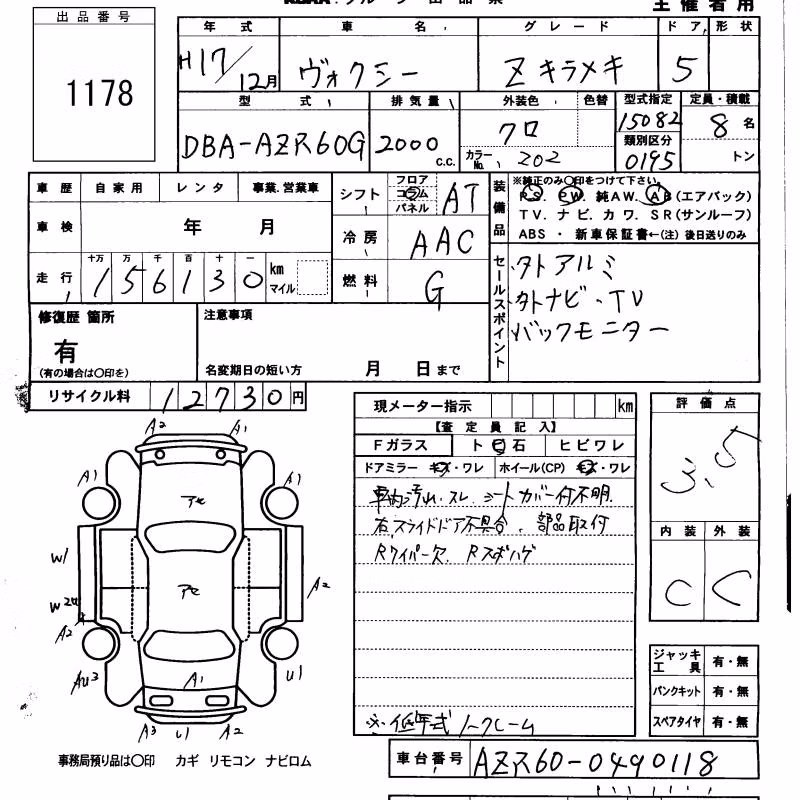 主催者用
出品番号
1178
年式 車名 グレード ドア 形状
H17/12月 ヴォクシー Zキラメキ 5
型式 排気量 外装色 色替 型式指定 定員・積載
DBA-AZR60G 2000 c.c. クロ 15082 8名
カラーNo. 202 類別区分 0195 トン
車歴 自家用 レンタ 事業.営業車
シフト フロア コラム パネル AT
装備品 ※純正のみ〇印をつけて下さい。
P.S. P.W. 純AW. AB(エアバック)
T V. ナビ. カワ. SR(サンルーフ)
ABS ・ 新車保証書←(注)後日送りのみ
車検 年 月
冷房 AAC
走行 十万 万 千 百 十 一
156130 km マイル
燃料 G
セールスポイント
タトアルミ
外ナビ・TV
バックモニター
修復歴 箇所
有
(有の場合は〇印を)
注意事項
名変期日の短い方 月 日まで
リサイクル料 12730円
現メーター指示 km
【査定員記入】
Fガラス ト石 ヒビワレ
ドアミラー キズ・ワレ ホイール(CP) キズ・ワレ
車内汚れ.スレ.シートカバー付不明.
右スライドドア不具合. 部品取付
Rワイパー欠. Rスポハゲ
※低年式ノークレーム
評価点
3.5
内装 外装
C C
ジャッキ工具 有・無
パンクキット 有・無
スペアタイヤ 有・無
A2 A1
A1 A1
アセ
W1
アセ
W2 A2
A2
AU3 A1 U1
A3 U1 A2
事務局預り品は〇印 カギ リモコン ナビロム
車台番号 AZR60-0490118